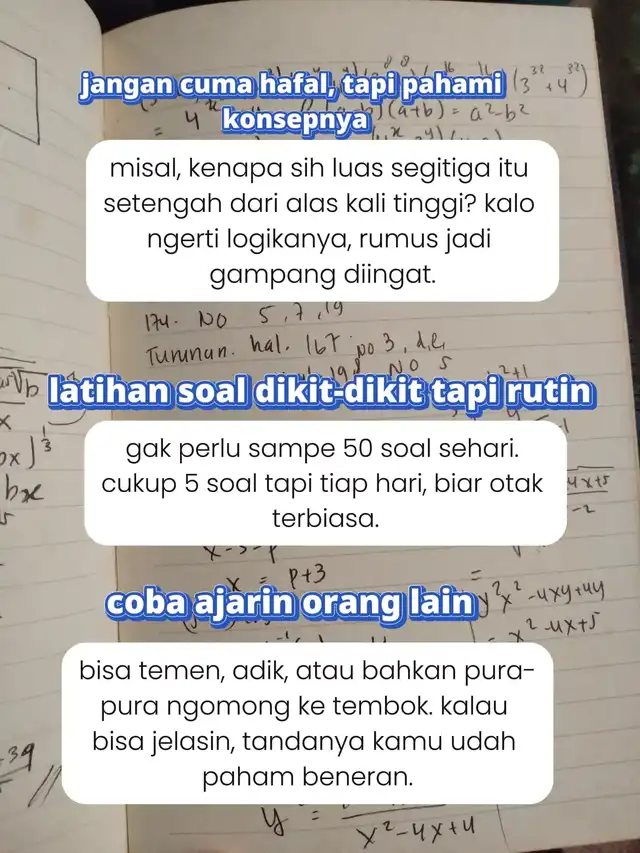 jangan cuma hafal, tapi pahami
konsepnya
(3³² + 4³²)
(a+b) = a²-b²
misal, kenapa sih luas segitiga itu
setengah dari alas kali tinggi? kalo
ngerti logikanya, rumus jadi
gampang diingat.
174. NO 5, 7, 19
Turunan. hal. 167 no 3, d, e,
NO 5
latihan soal dikit-dikit tapi rutin
gak perlu sampe 50 soal sehari.
cukup 5 soal tapi tiap hari, biar otak
terbiasa.
bx
4x+5
-2
x = p+3
coba ajarin orang lain
y²x² -4xy+4y
x² -4x+5
bisa temen, adik, atau bahkan pura-
pura ngomong ke tembok. kalau
bisa jelasin, tandanya kamu udah
paham beneran.
-39
y =
x²-4x+4